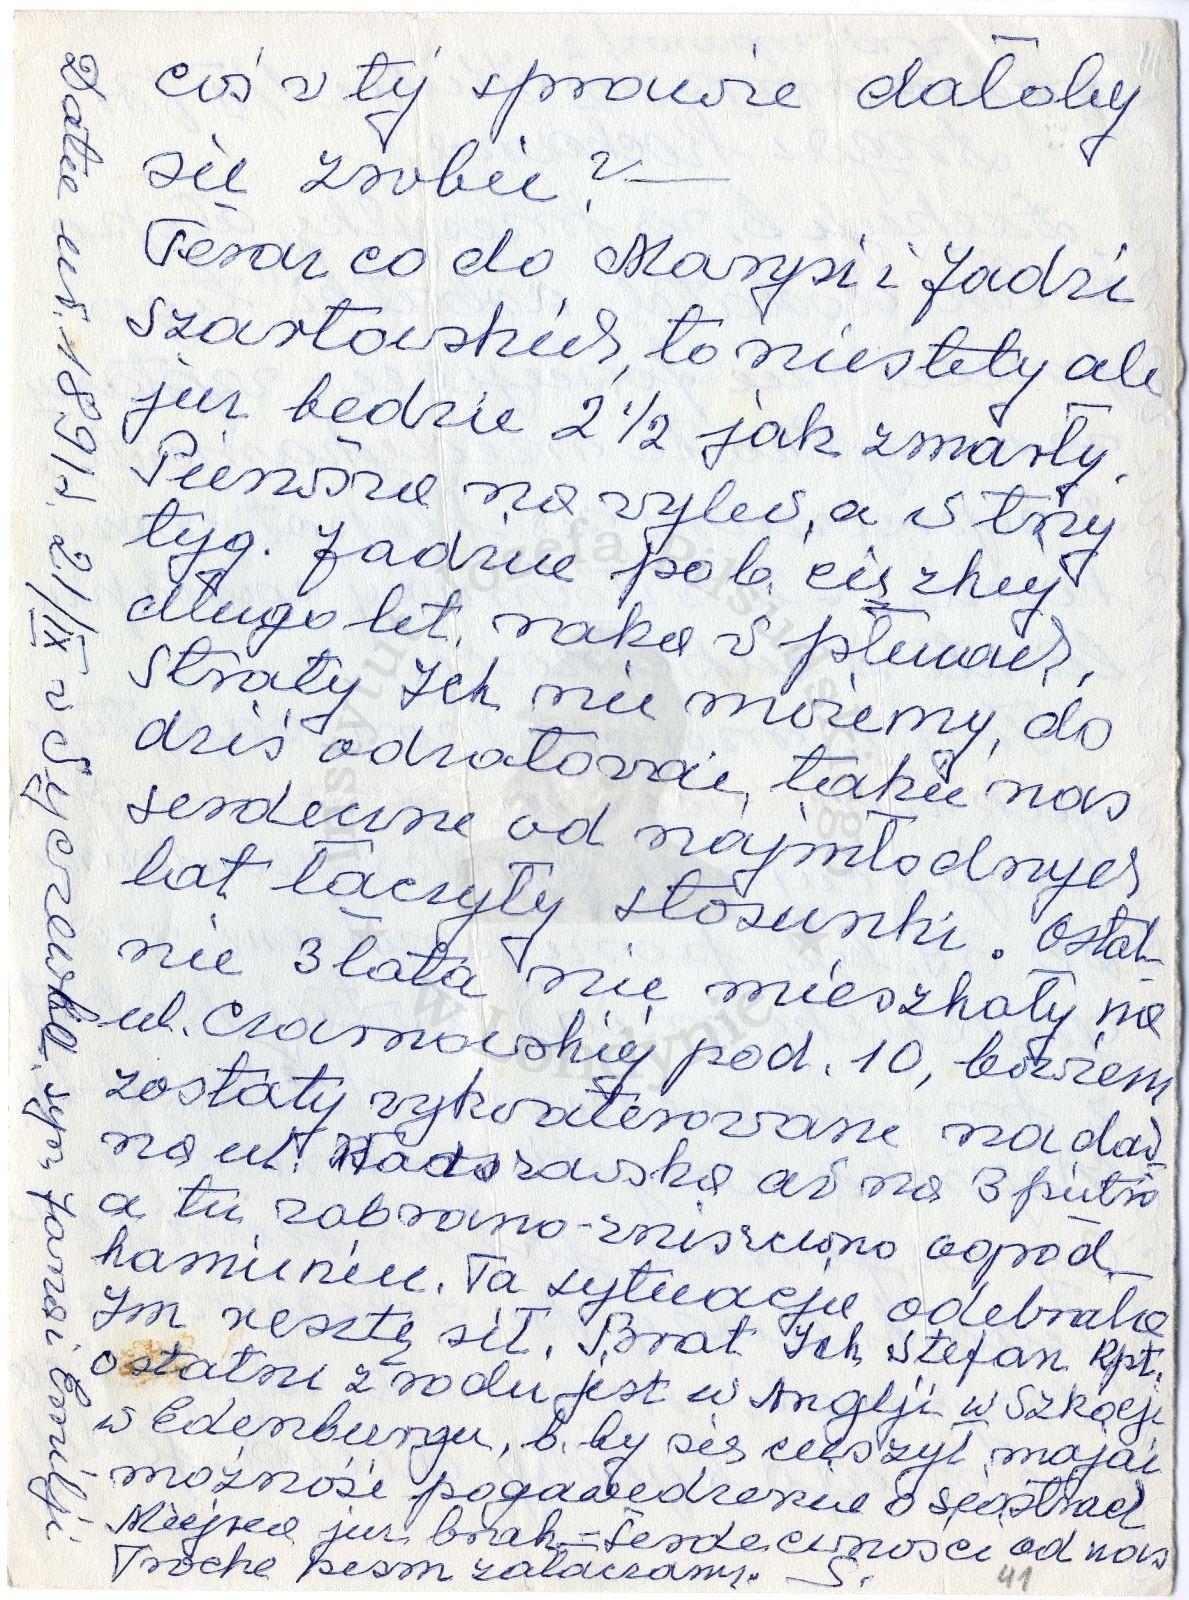 coś w tej sprawie dałoby
się zrobić? —
Teraz co do Marysi i Jadzi
Szarłowskich, to niestety ale
już będzie 2 1/2 jak zmarły.
Pierwsza na wylew, a w trzy
tyg. Jadzia po b. ciężkiej
długolet. raka w płucach.
Straty Ich nie możemy, do
dziś odżałować, takie nas
serdeczne od najmłodszych
lat łączyły stosunki. Ostat-
nie 3 lata nie mieszkały na
ul. Czarnowskiej pod. 10, bowiem
zostały wykwaterowane na dal
na ul. aż na 3 piętro
a tu zabrano-zniszczono ogród
kamienice. Ta sytuacja odebrała
Im resztę sił. Brat Ich Stefan Kpt.
ostatni z rodu jest w Anglji w Szkocji
w Edenburgu, b. by się cieszył mając
możność pogawędzenia o siostrach
Miejsca już brak – Serdeczności od nas
Trochę pism załączamy. — S.
41
Data ur. 1891 r. 21/IX w Syczewska, syn Jana i Emilji
Instytut Józefa Piłsudskiego
w Londynie